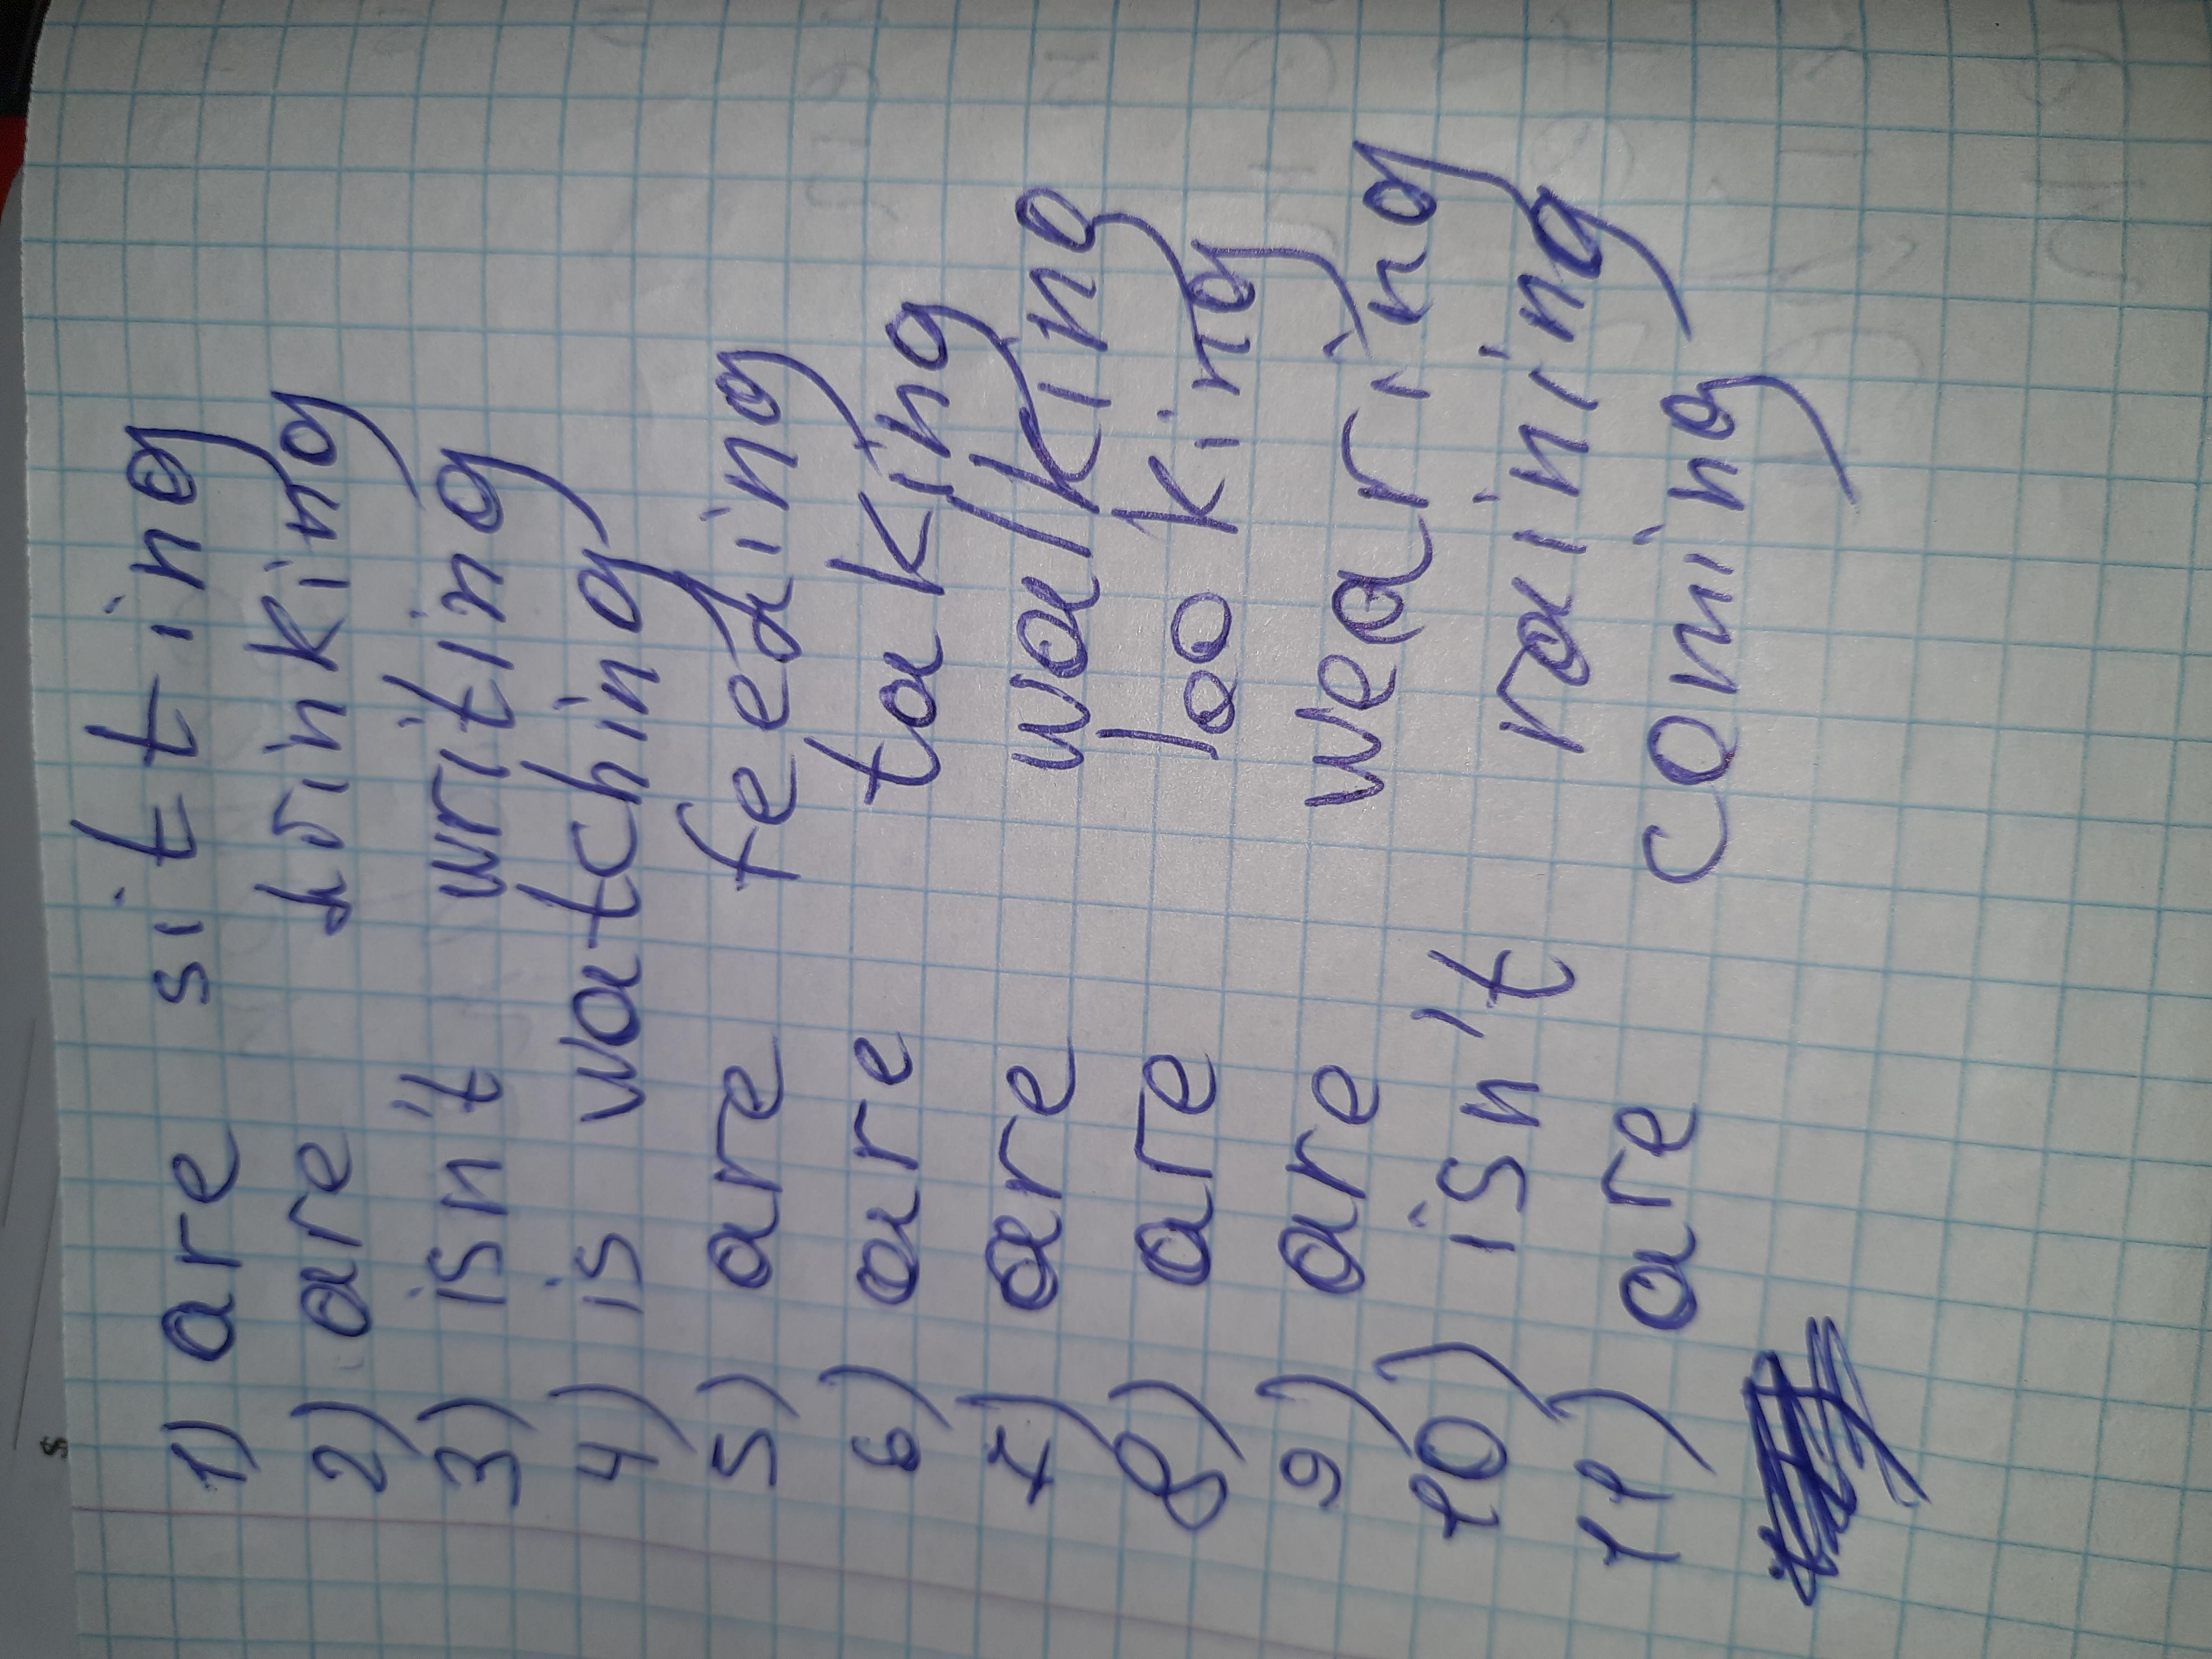 1) are sitting
2) are drinking
3) isn't writing
4) is watching
5) are feeding
6) are taking
7) are walking
8) are looking
9) are wearing
10) isn't raining
11) are coming